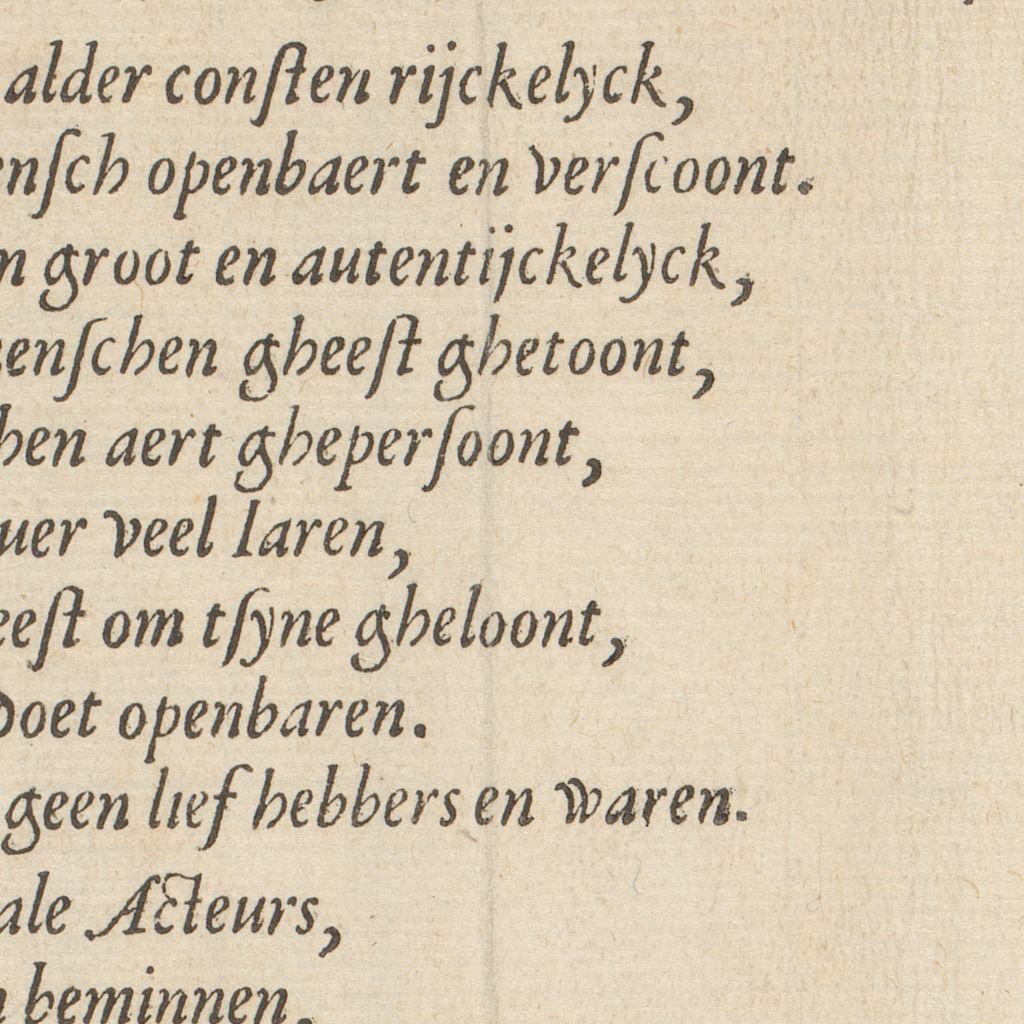 alder conſten rijckelyck,
enſch openbaert en verſcoont.
n groot en autentijckelyck,
enſchen gheeſt ghetoont,
hen aert gheperſoont,
uer veel Iaren,
eeſt om tſyne gheloont,
Doet openbaren.
geen lief hebbers en waren.
ale Acteurs,
beminnen,